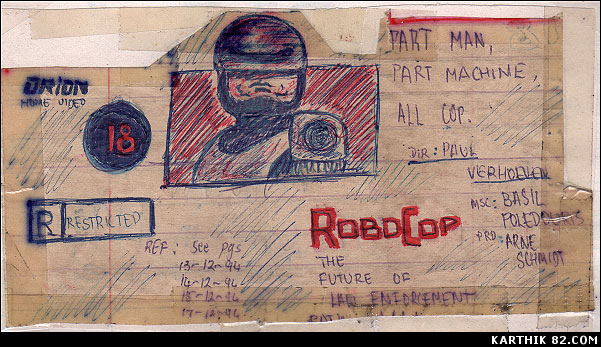 ORION
HOME VIDEO
18
R RESTRICTED
REF: See pgs
13-12-94
14-12-94
15-12-94
17-12-94
PART MAN,
PART MACHINE,
ALL COP.
DIR: PAUL
VERHOEVEN
MSC: BASIL
POLEDOURIS
PRD: ARNE
SCHMIDT
ROBOCOP
THE
FUTURE OF
LAW ENFORCEMENT
KARTHIK 82.COM